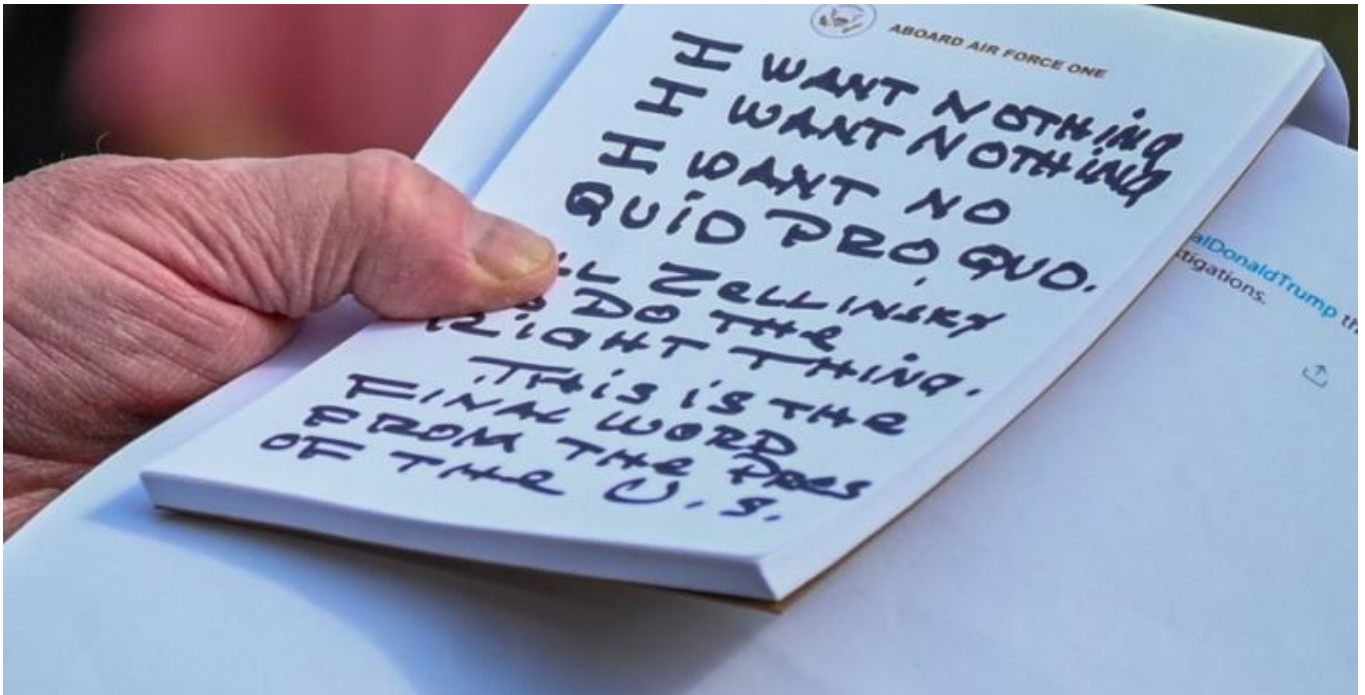 ABOARD AIR FORCE ONE
I WANT NOTHING
I WANT NOTHING
I WANT NO
QUID PRO QUO.
LL ZELLINSKY
DO THE
RIGHT THING.
THIS IS THE
FINAL WORD
FROM THE PRES
OF THE U.S.
alDonaldTrump th
tigations.